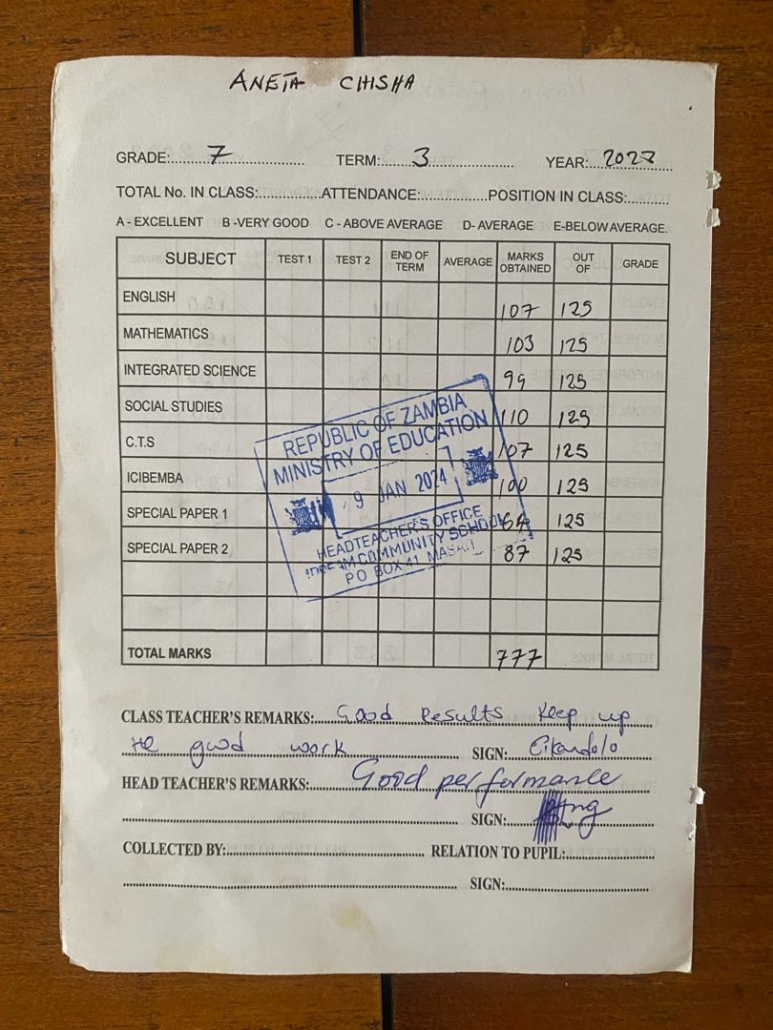 ANETA CHISHA
GRADE: 7 TERM: 3 YEAR: 2023
TOTAL No. IN CLASS: ATTENDANCE: POSITION IN CLASS:
A - EXCELLENT B -VERY GOOD C - ABOVE AVERAGE D- AVERAGE E-BELOW AVERAGE.
SUBJECT TEST 1 TEST 2 END OF TERM AVERAGE MARKS OBTAINED OUT OF GRADE
ENGLISH 107 125
MATHEMATICS 103 125
INTEGRATED SCIENCE 99 125
SOCIAL STUDIES 110 125
C.T.S 107 125
ICIBEMBA 100 125
SPECIAL PAPER 1 64 125
SPECIAL PAPER 2 87 125
TOTAL MARKS 777
REPUBLIC OF ZAMBIA
MINISTRY OF EDUCATION
9 JAN 2024
HEADTEACHER'S OFFICE
COMMUNITY SCHOOL
P O BOX 41,
CLASS TEACHER'S REMARKS: Good Results Keep up
the good work SIGN:
HEAD TEACHER'S REMARKS: Good performance
SIGN:
COLLECTED BY: RELATION TO PUPIL:
SIGN: